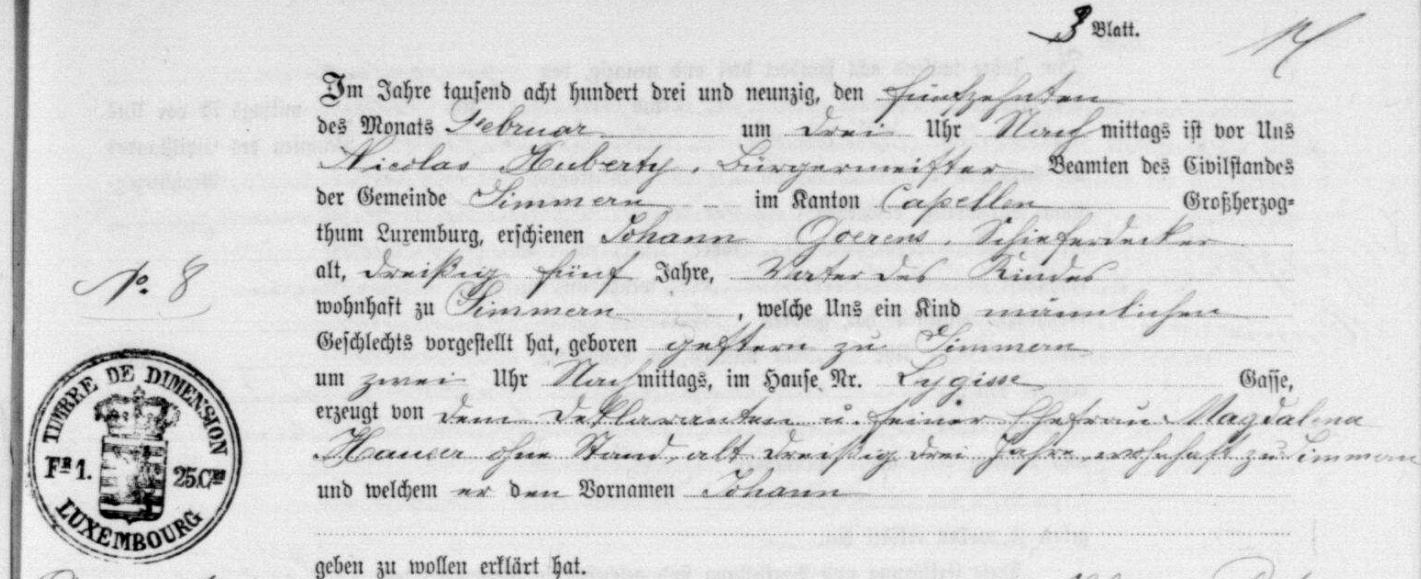 3 Blatt.
Im Jahre tausend acht hundert drei und neunzig, den fünfzehnten
des Monats Februar um drei Uhr Nach mittags ist vor Uns
Nicolas Huberty, Bürgermeister Beamten des Civilstandes
der Gemeinde Simmern im Kanton Capellen Großherzog-
thum Luxemburg, erschienen Johann Goerens, Schieferdecker
alt, dreißig fünf Jahre, Vater des Kindes
No. 8
wohnhaft zu Simmern, welche Uns ein Kind männlichen
Geschlechts vorgestellt hat, geboren gestern zu Simmern
um zwei Uhr Nachmittags, im Hause Nr. Gasse,
erzeugt von dem Deklaranten u. seiner Ehefrau Magdalena
Hauser ohne Stand, alt dreißig drei Jahre, wohnhaft zu Simmern
und welchem er den Vornamen Johann
geben zu wollen erklärt hat.
TIMBRE DE DIMENSION
Fr 1. 25 Cmes
LUXEMBOURG